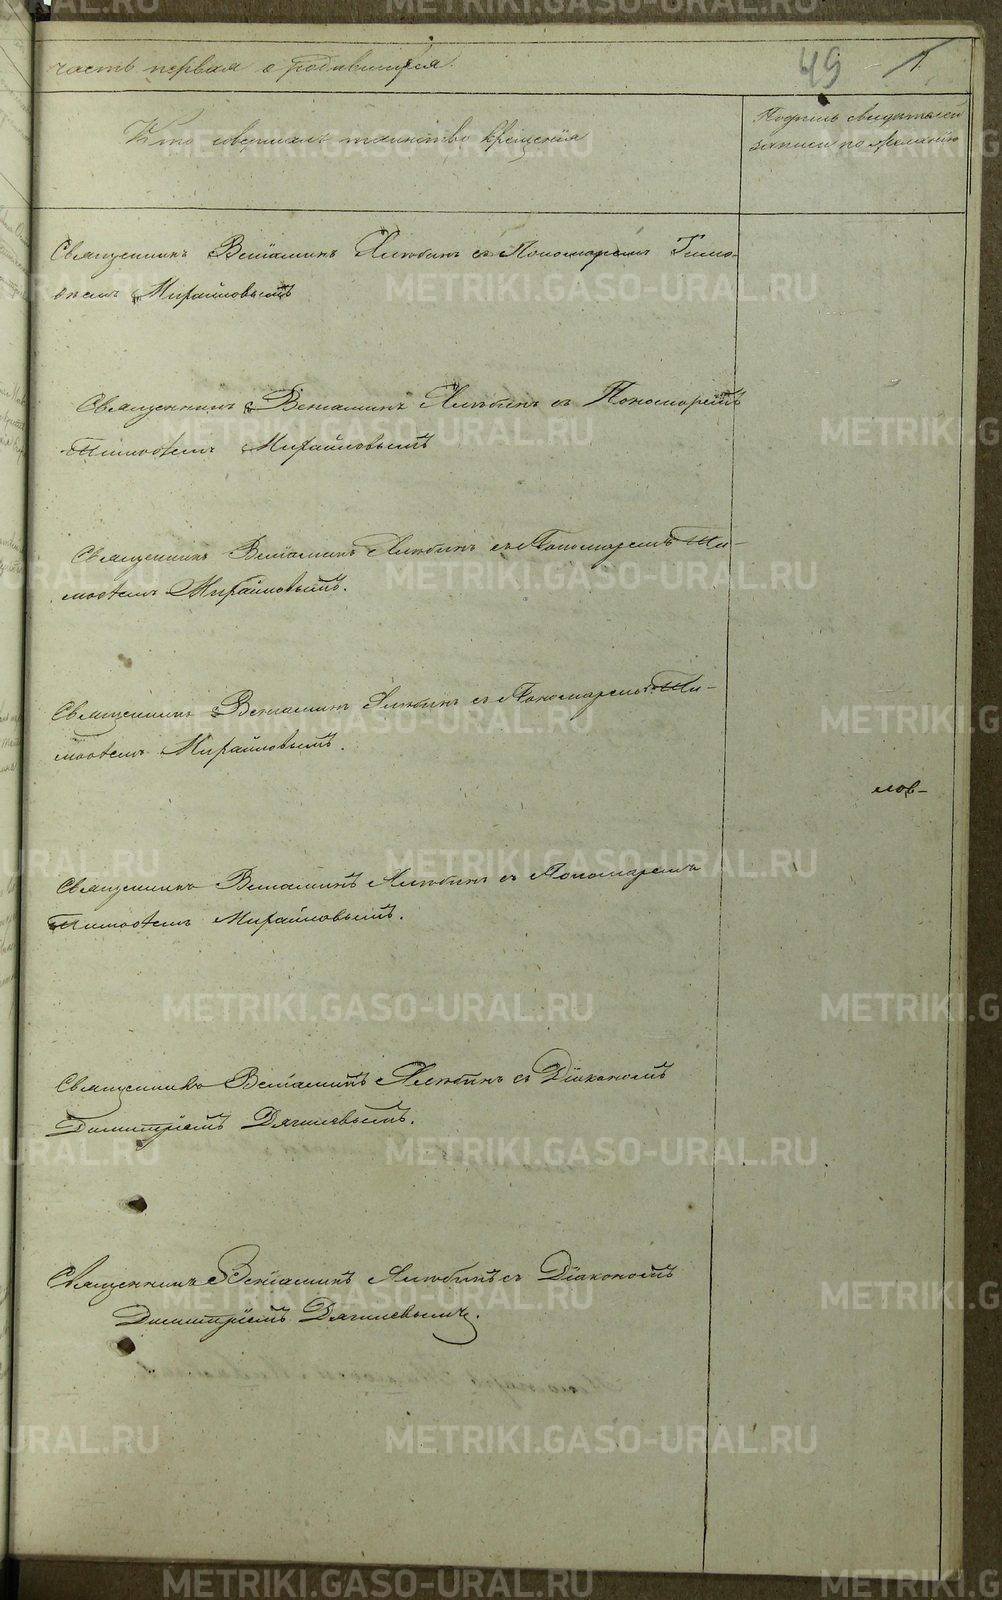 часть первая о родившихся.
49
Кто совершалъ таинство крещенія
Подпись свидѣтелей
записи по желанію
Священникъ Веніаминъ съ Пономаремъ Тимо-
ѳеемъ Михайловымъ
Священникъ Веніаминъ съ Пономаремъ
Тимоѳеемъ Михайловымъ
Священникъ Веніаминъ съ Пономаремъ Ти-
моѳеемъ Михайловымъ.
Священникъ Веніаминъ съ Пономаремъ Ти-
моѳеемъ Михайловымъ.
лов-
Священникъ Веніаминъ съ Пономаремъ
Тимоѳеемъ Михайловымъ.
Священникъ Веніаминъ съ Діакономъ
Димитріемъ Дягилевымъ.
Священникъ Веніаминъ съ Діакономъ
Димитріемъ Дягилевымъ.
METRIKI.GASO-URAL.RU